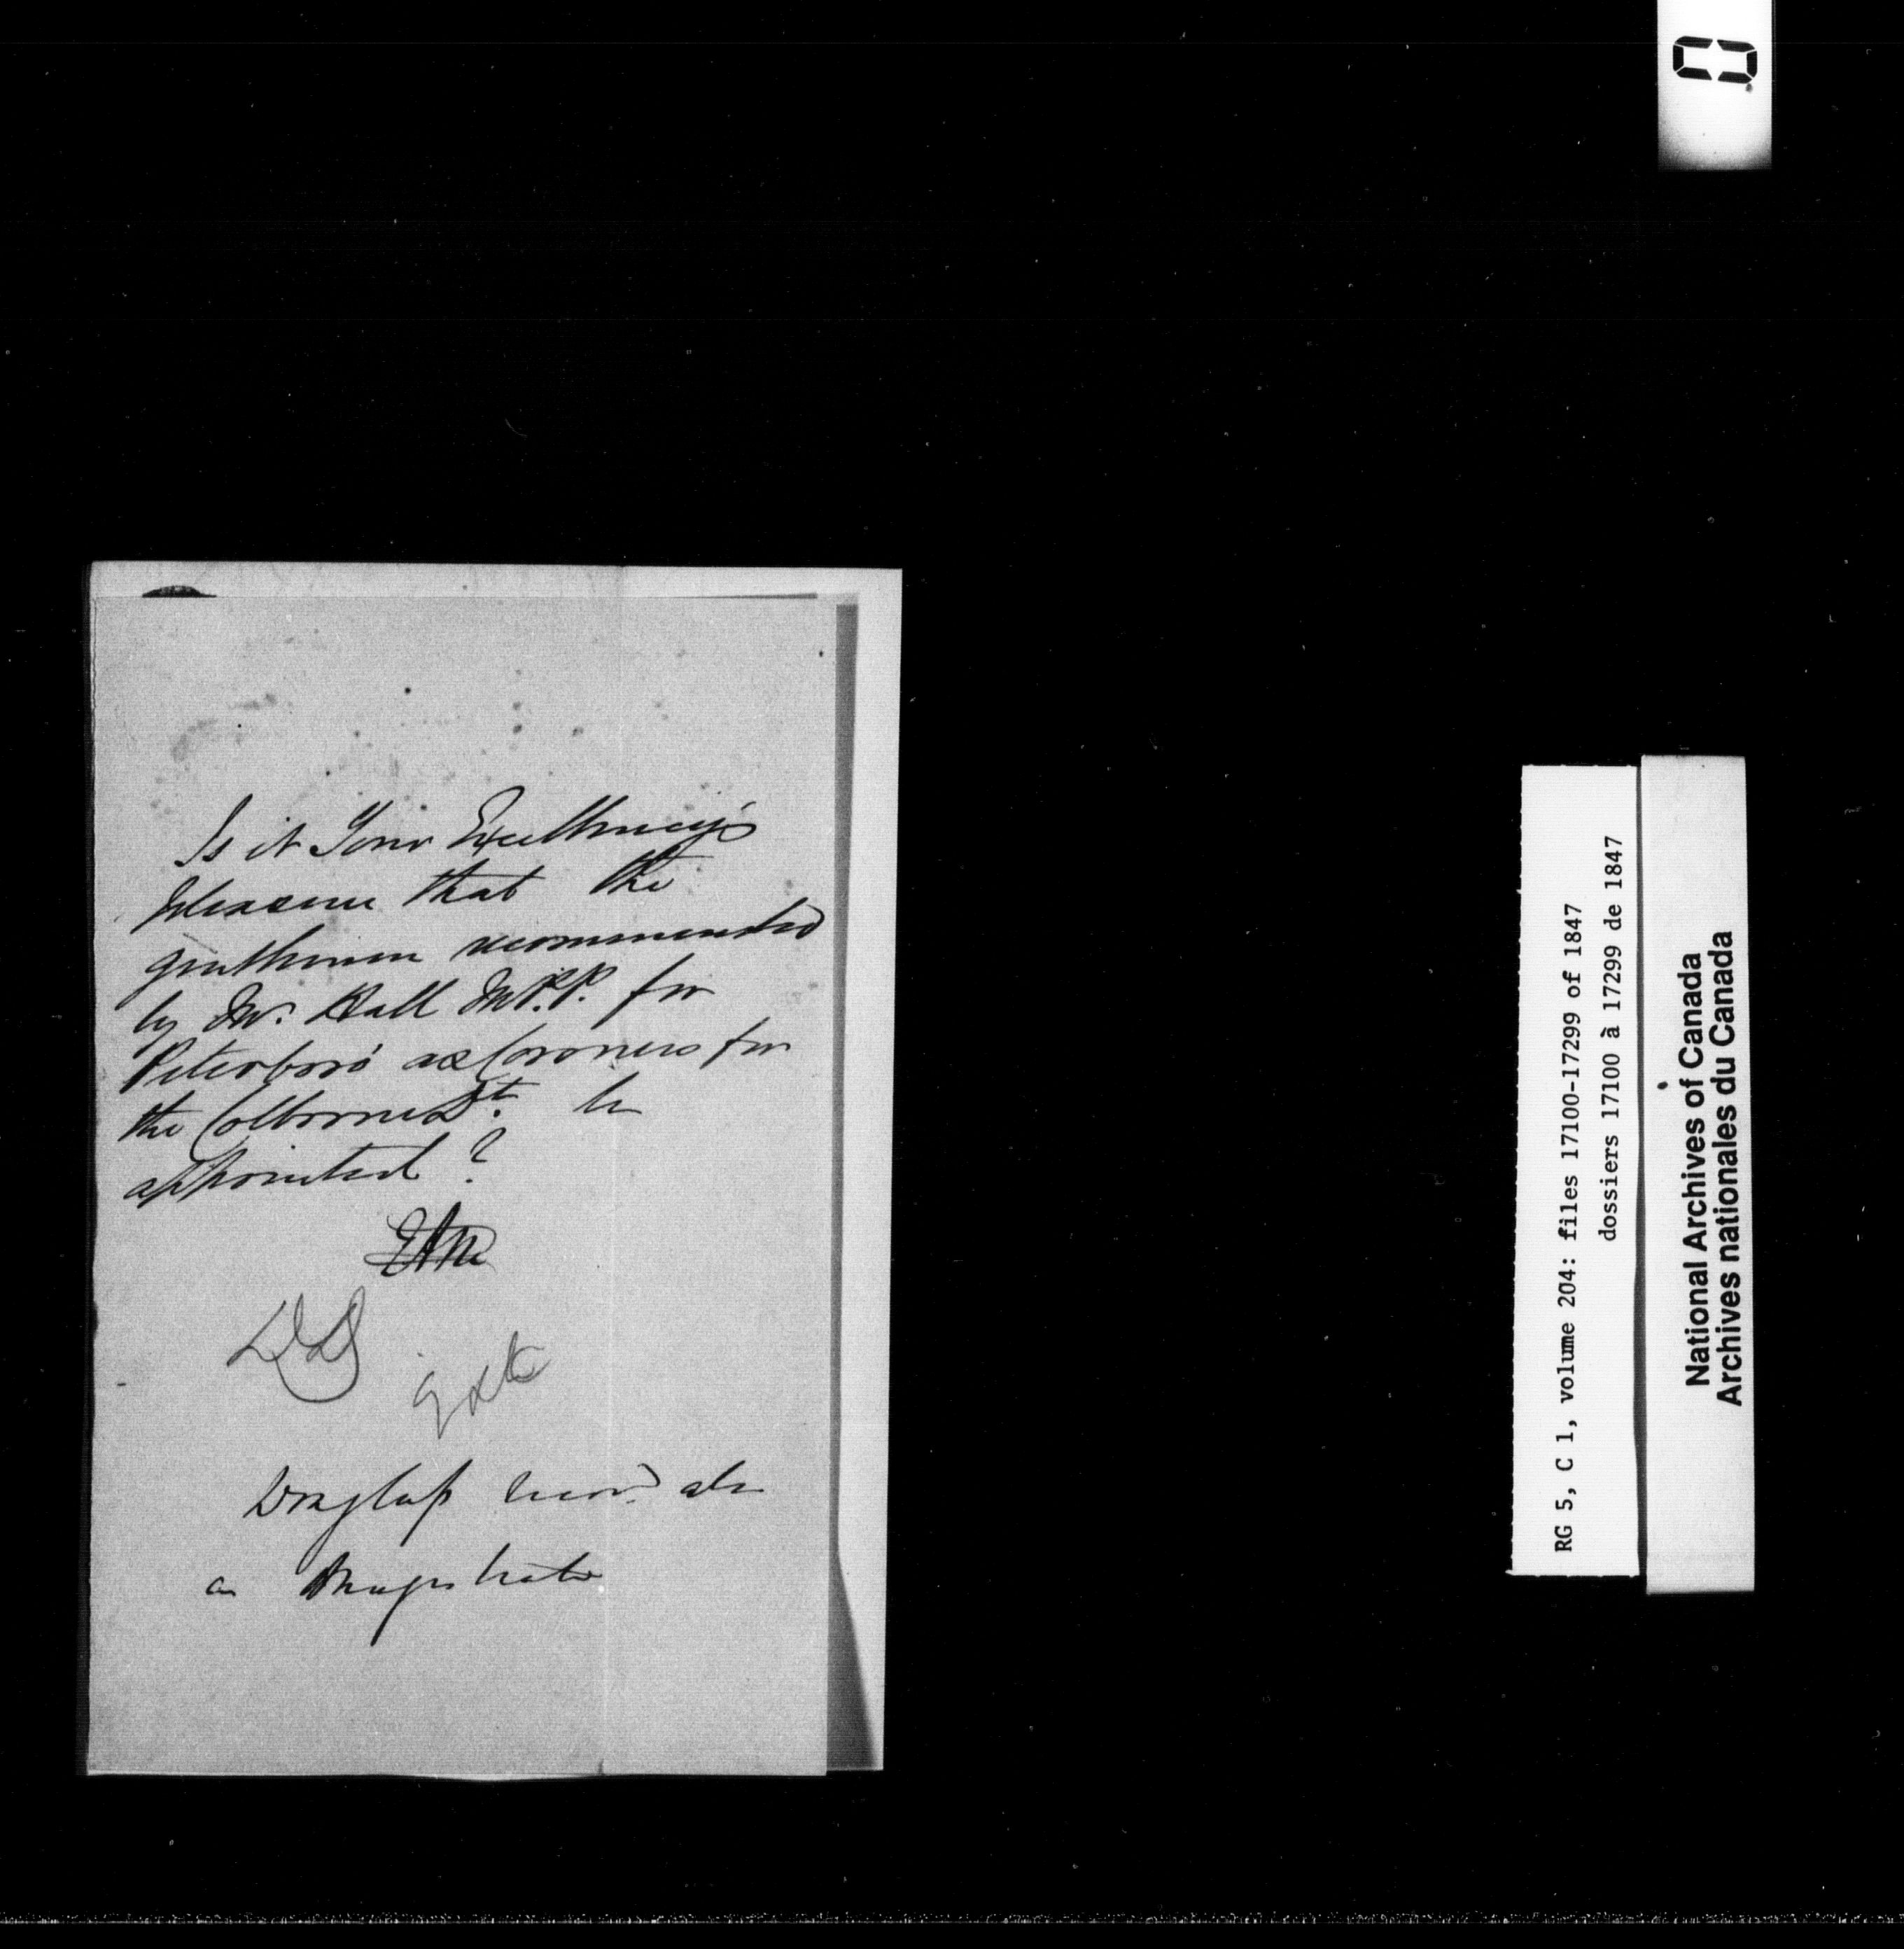 Is it Your Excellency's
pleasure that the
gentlemen recommended
by Mr. Hall M.P.P. for
Peterboro' as Coroners for
the Colborne Dt. be
appointed?
also
a Magistrate
RG 5, C 1, volume 204: files 17100-17299 of 1847
dossiers 17100 à 17299 de 1847
National Archives of Canada
Archives nationales du Canada